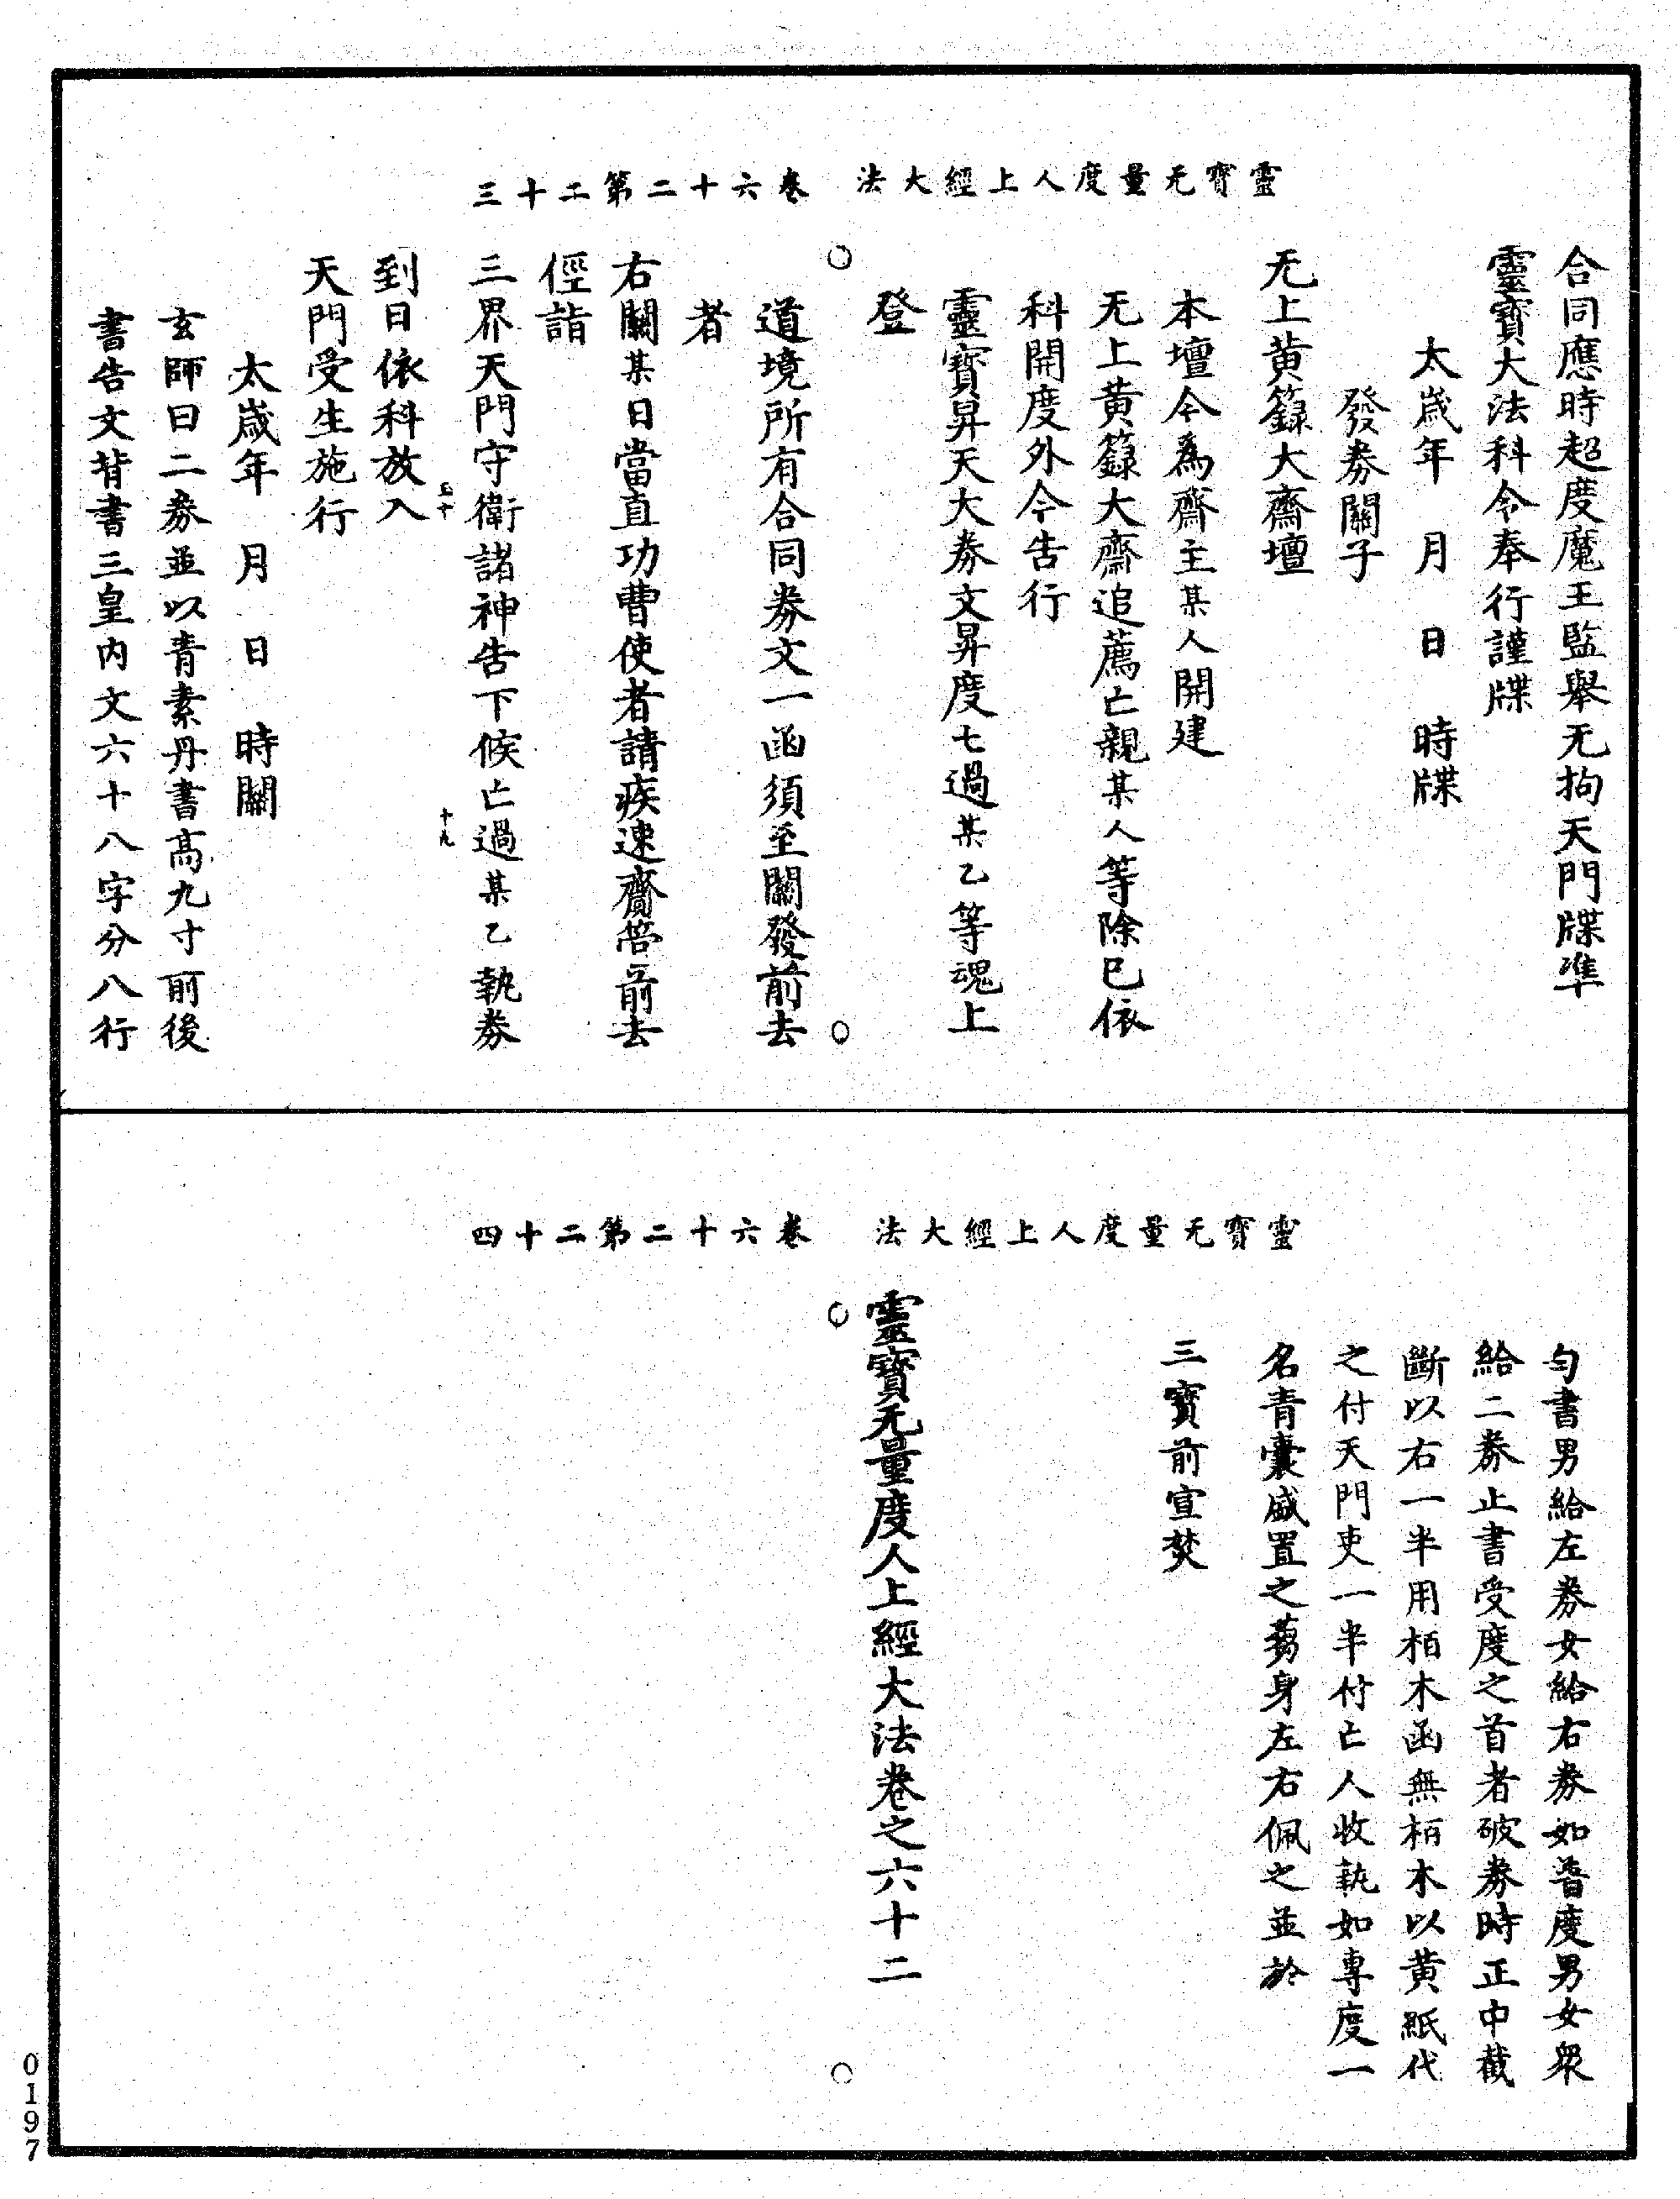 靈寶无量度人上經大法　卷六十二第二十三
合同應時超度魔王監舉无拘天門牒準
靈寶大法科令奉行謹牒
太歲年　月　日　時牒
發券關子
无上黃籙大齋壇
本壇今為齋主某人開建
无上黃籙大齋追薦亡親某人等除已依
科開度外今告行
靈寶昇天大券文昇度亡過某乙等魂上
登
道境所有合同券文一函須至關發前去
者
右關某日當直功曹使者請疾速齎前去
徑詣
三界天門守衛諸神告下候亡過某乙執券
到日依科放入
天門受生施行
太歲年　月　日　時關
玄師曰二券並以青素丹書高九寸前後
書告文背書三皇內文六十八字分八行
靈寶无量度人上經大法　卷六十二第二十四
勻書男給左券女給右券如普度男女眾
給二券止書受度之首者破券時正中截
斷以右一半用栢木函無栢木以黃紙代
之付天門吏一半付亡人收執如專度一
名青囊盛置之蒭身左右佩之並於
三寶前宣焚
靈寶无量度人上經大法卷之六十二
0197